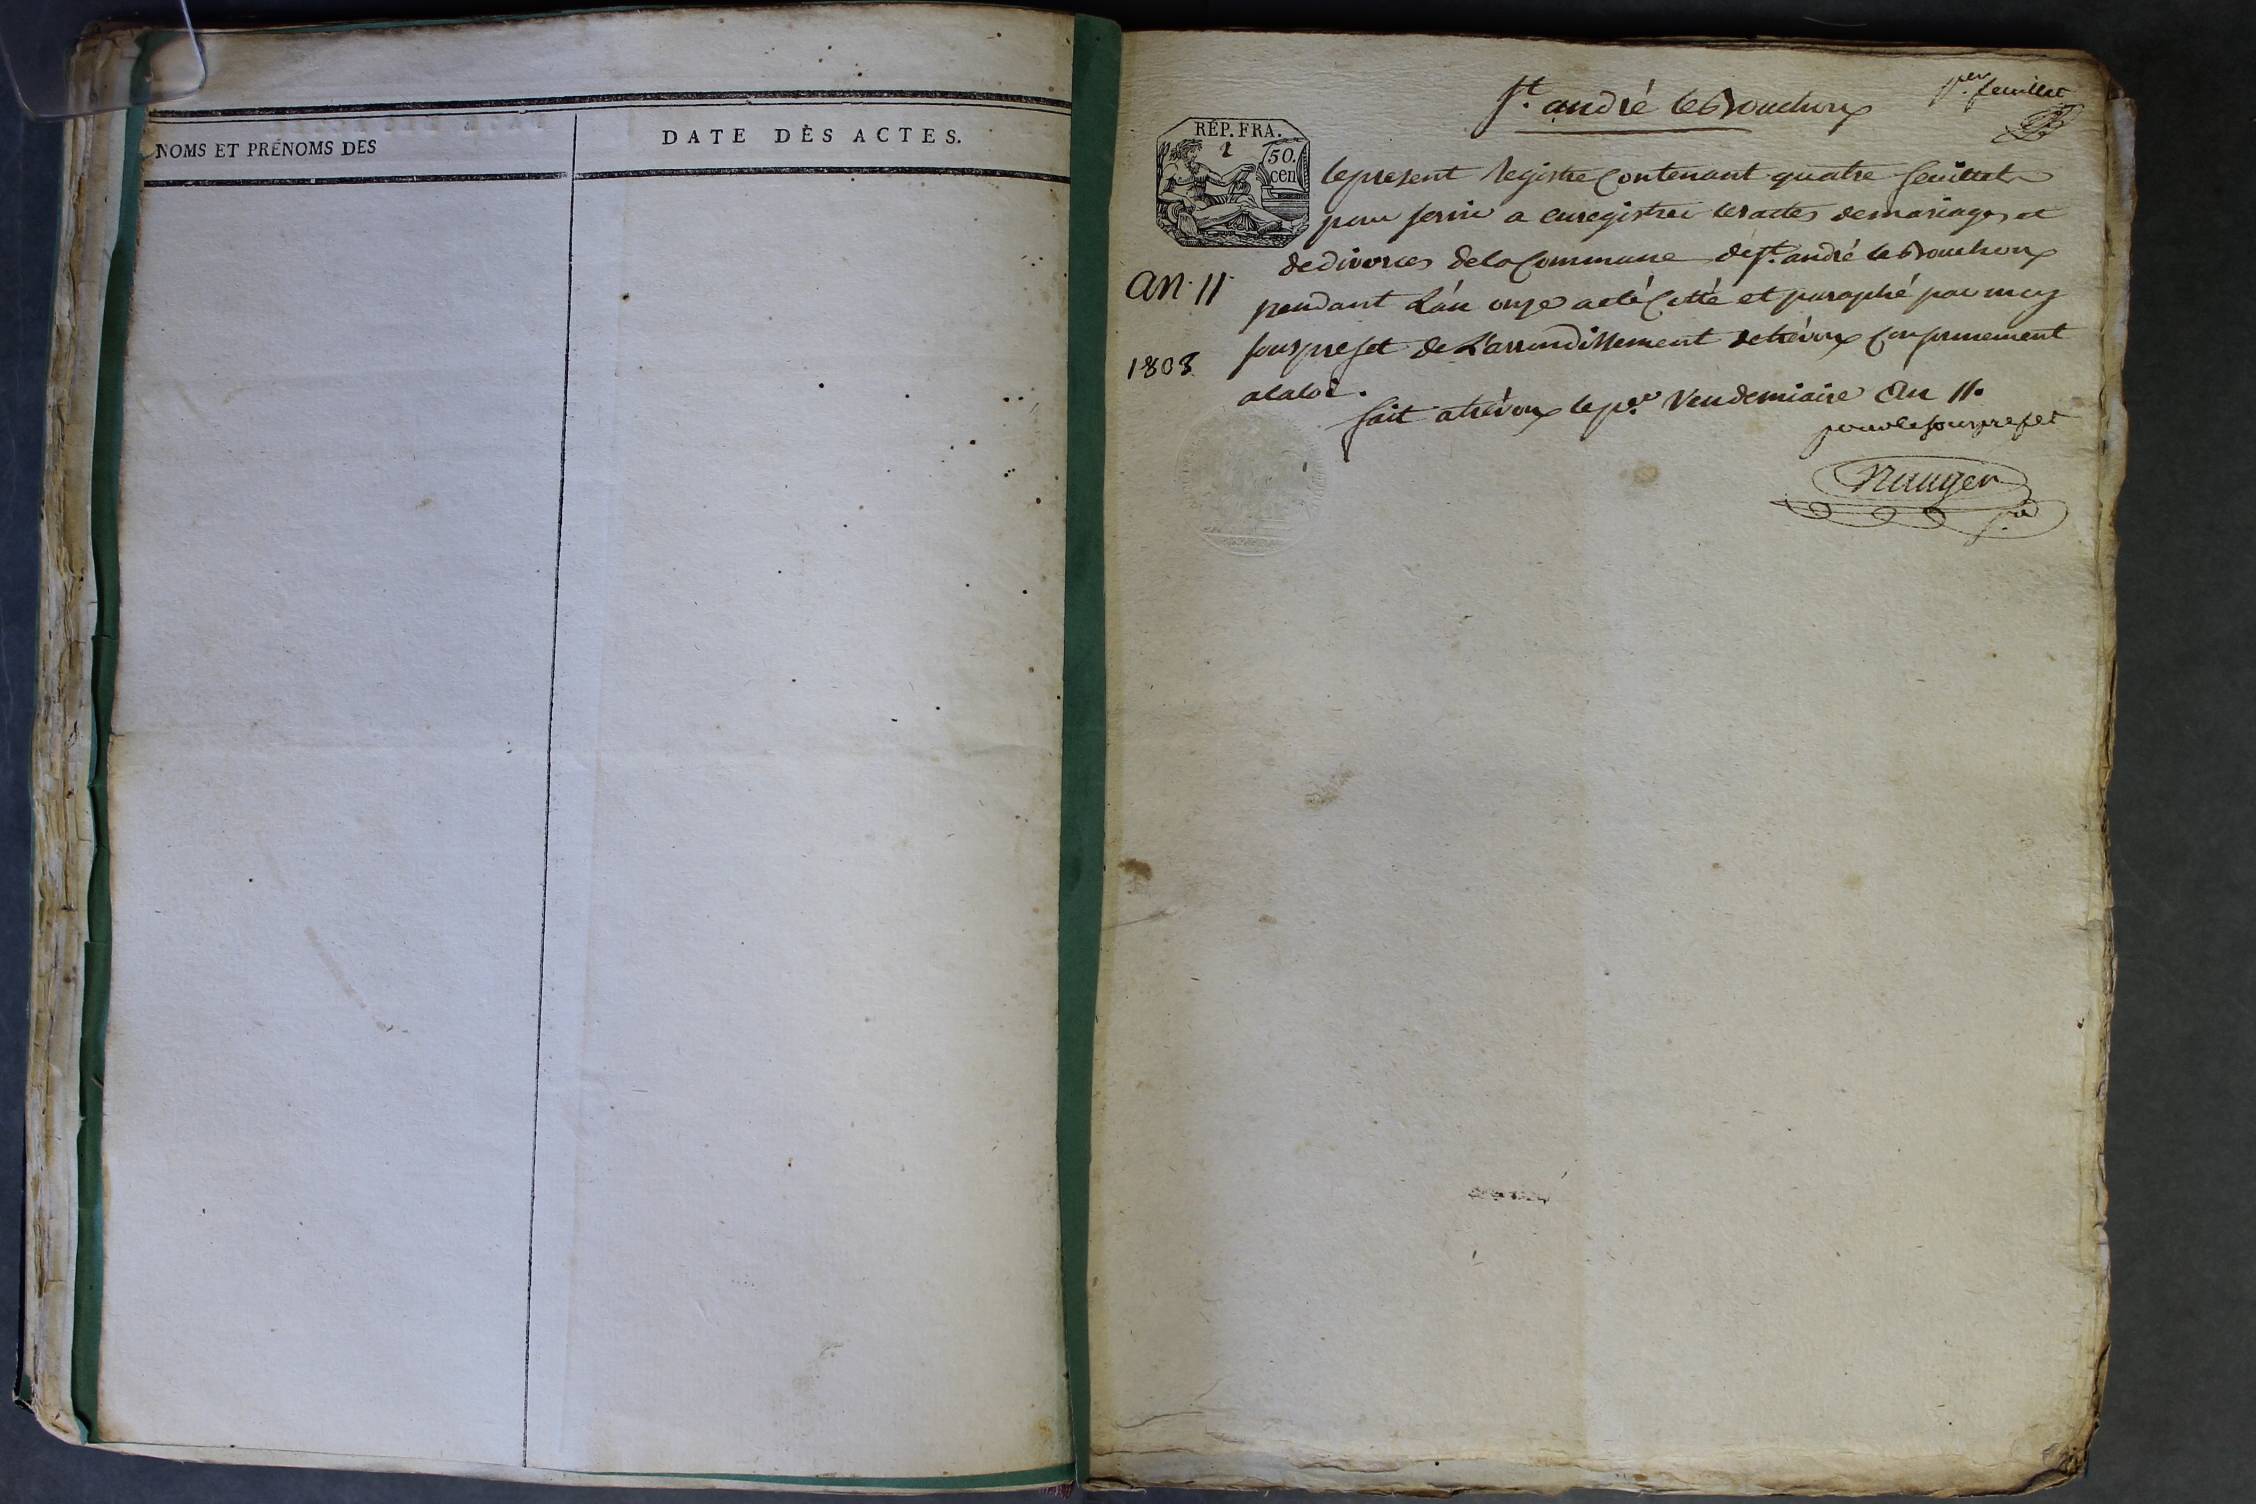 NOMS ET PRÉNOMS DES
DATE DES ACTES.
St. andré le Bouchoux
per. feuillet
RÉP. FRA.
50.
cen
le present Registre Contenant quatre feuillets
pour servir a enregistrer les actes de mariages et
de divorces de la Commune de St. andré le Bouchoux
An 11
pendant L'an onze a eté Cotté et paraphé par moy
sous prefet de L'arrondissement de trévoux Conformement
1803
a la loi.
fait a trévoux le per. Vendemiaire An 11.
pour le sous prefet